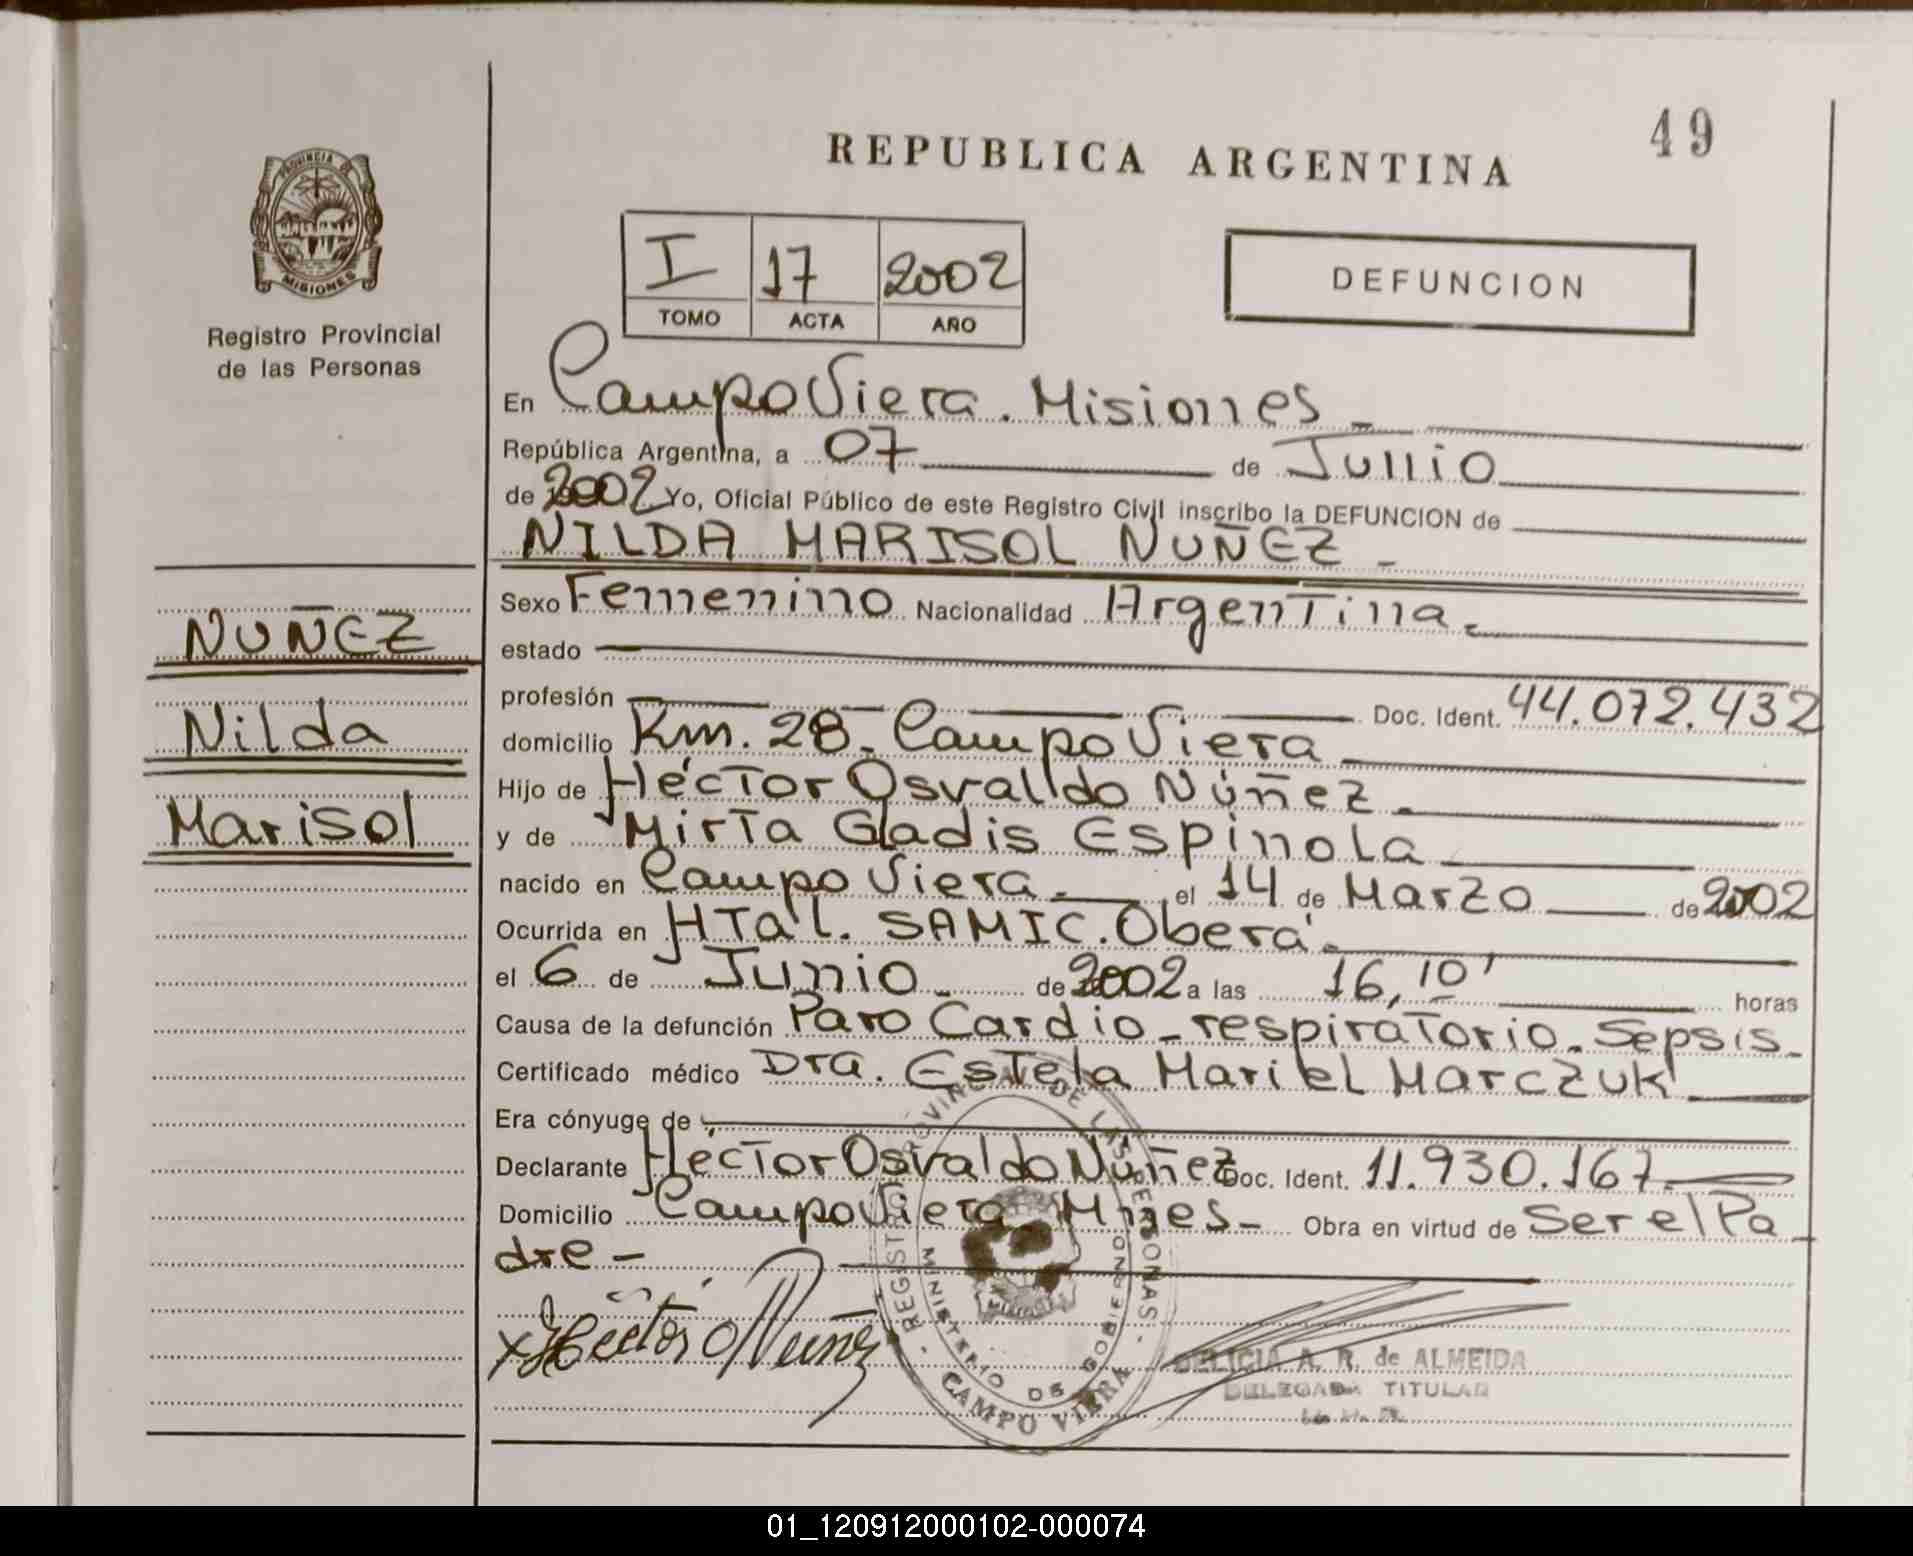 49
REPUBLICA ARGENTINA
PROVINCIA DE
MISIONES
Registro Provincial
de las Personas
I 17 2002
TOMO ACTA AÑO
DEFUNCION
En Campo Viera. Misiones
República Argentina, a 07 de Junio
de 2002 Yo, Oficial Público de este Registro Civil inscribo la DEFUNCION de
NILDA MARISOL NUÑEZ -
Sexo Femenino Nacionalidad Argentina.
estado
profesión Doc. Ident. 44.072.432
domicilio Km. 28- Campo Viera
Hijo de Héctor Osvaldo Núñez.
y de Mirta Gladis Espinola
nacido en Campo Viera. el 14 de Marzo de 2002
Ocurrida en HTal. SAMIC. Oberá.
el 6 de Junio de 2002 a las 16,10' horas
Causa de la defunción Paro Cardio-respiratorio. Sepsis-
Certificado médico Dra. Estela Maribel Marczuk
Era cónyuge de
Declarante Héctor Osvaldo Núñez Doc. Ident. 11.930.167.
Domicilio Campo Viera Mnes- Obra en virtud de Ser el Pa
dre -
NUÑEZ
Nilda
Marisol
x Hector Nuñez
REGISTRO PROVINCIAL DE LAS PERSONAS
MINISTERIO DE GOBIERNO
CAMPO VIERA
DELICIA A. R. de ALMEIDA
DELEGADA TITULAR
01_120912000102-000074